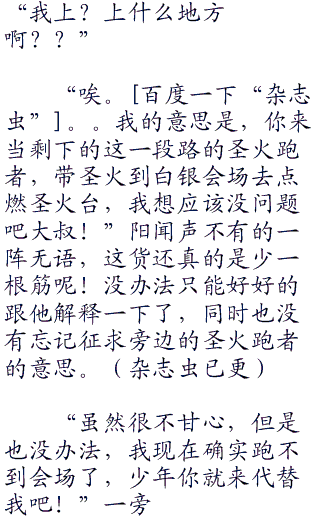 “我上？上什么地方
啊？？”
“唉。[百度一下“杂志
虫”]。。我的意思是，你来
当剩下的这一段路的圣火跑
者，带圣火到白银会场去点
燃圣火台，我想应该没问题
吧大叔！”阳闻声不有的一
阵无语，这货还真的是少一
根筋呢！没办法只能好好的
跟他解释一下了，同时也没
有忘记征求旁边的圣火跑者
的意思。（杂志虫已更）
“虽然很不甘心，但是
也没办法，我现在确实跑不
到会场了，少年你就来代替
我吧！”一旁